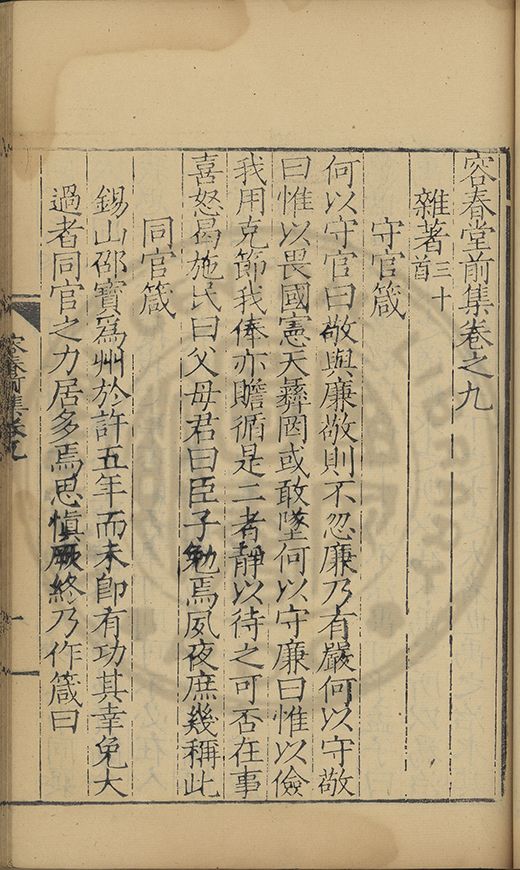 容春堂前集卷之九
雜著三十首
守官箴
何以守官曰敬與廉敬則不忽廉乃有嚴何以守敬
曰惟以畏國憲天彝罔或敢墜何以守廉曰惟以儉
我用克節我俸亦贍循是二者靜以待之可否在事
喜怒曷施民曰父母君曰臣子勉焉夙夜庶幾稱此
同官箴
錫山邵寶爲州於許五年而未卽有功其幸免大
過者同官之力居多焉思慎厥終乃作箴曰
容春前集卷九
一